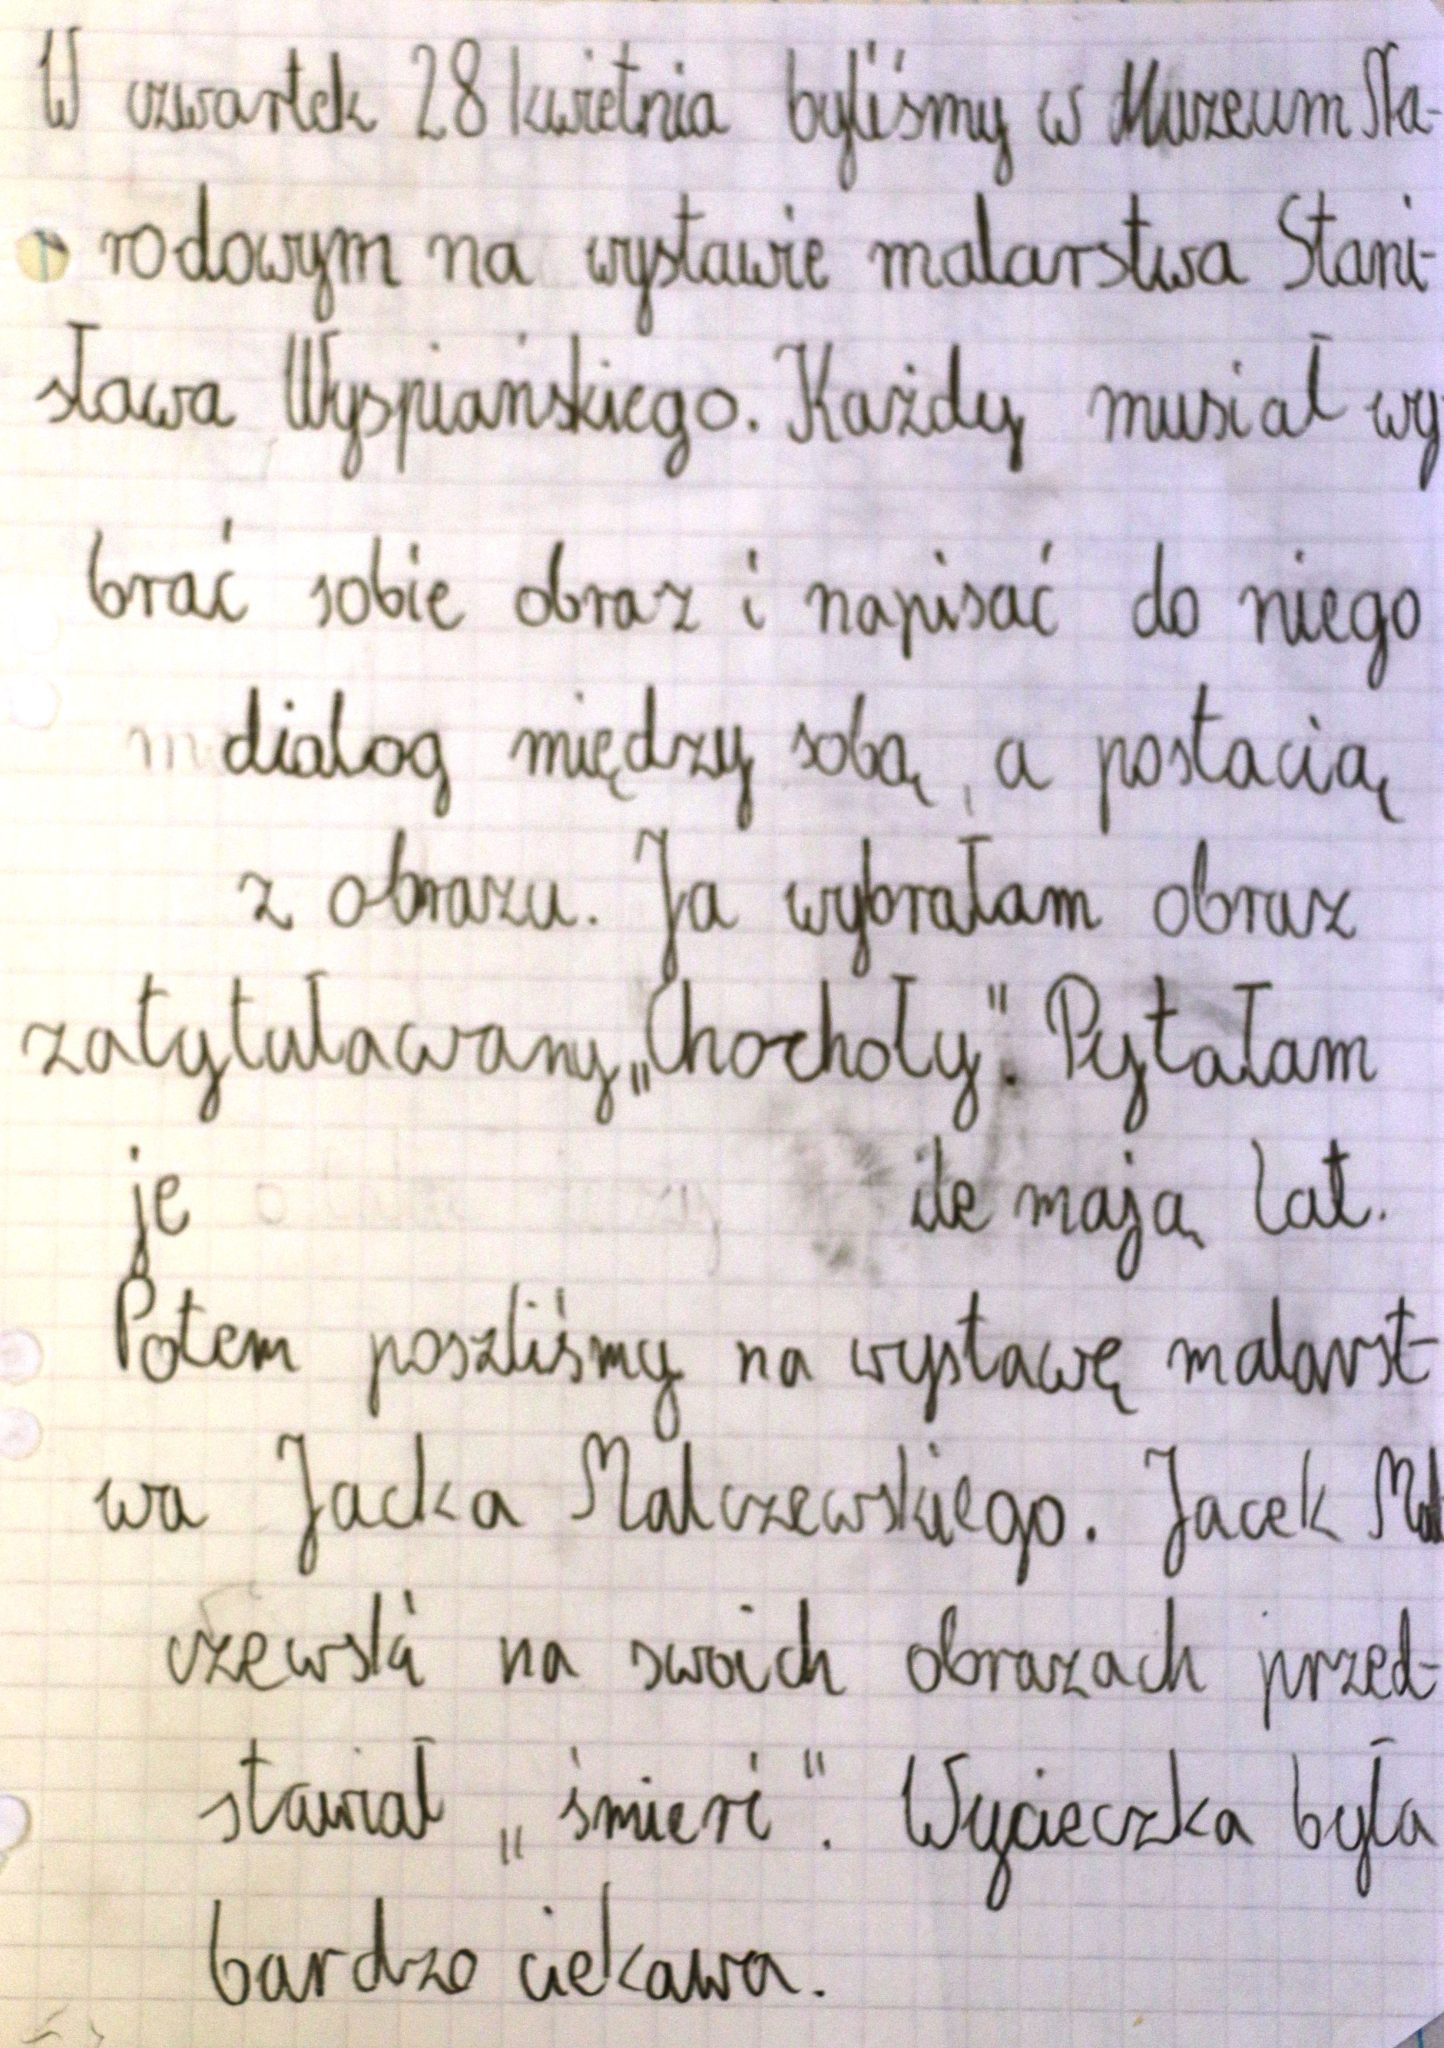 W czwartek 28 kwietnia byliśmy w Muzeum Na-
rodowym na wystawie malarstwa Stani-
sława Wyspiańskiego. Każdy musiał wy-
brać sobie obraz i napisać do niego
dialog między sobą, a postacią
z obrazu. Ja wybrałam obraz
zatytuławany „Chochoły". Pytałam
je ile mają lat.
Potem poszliśmy na wystawę malarst-
wa Jacka Malczewskiego. Jacek Mal
czewski na swoich obrazach przed-
stawiał „śmierć". Wycieczka była
bardzo ciekawa.